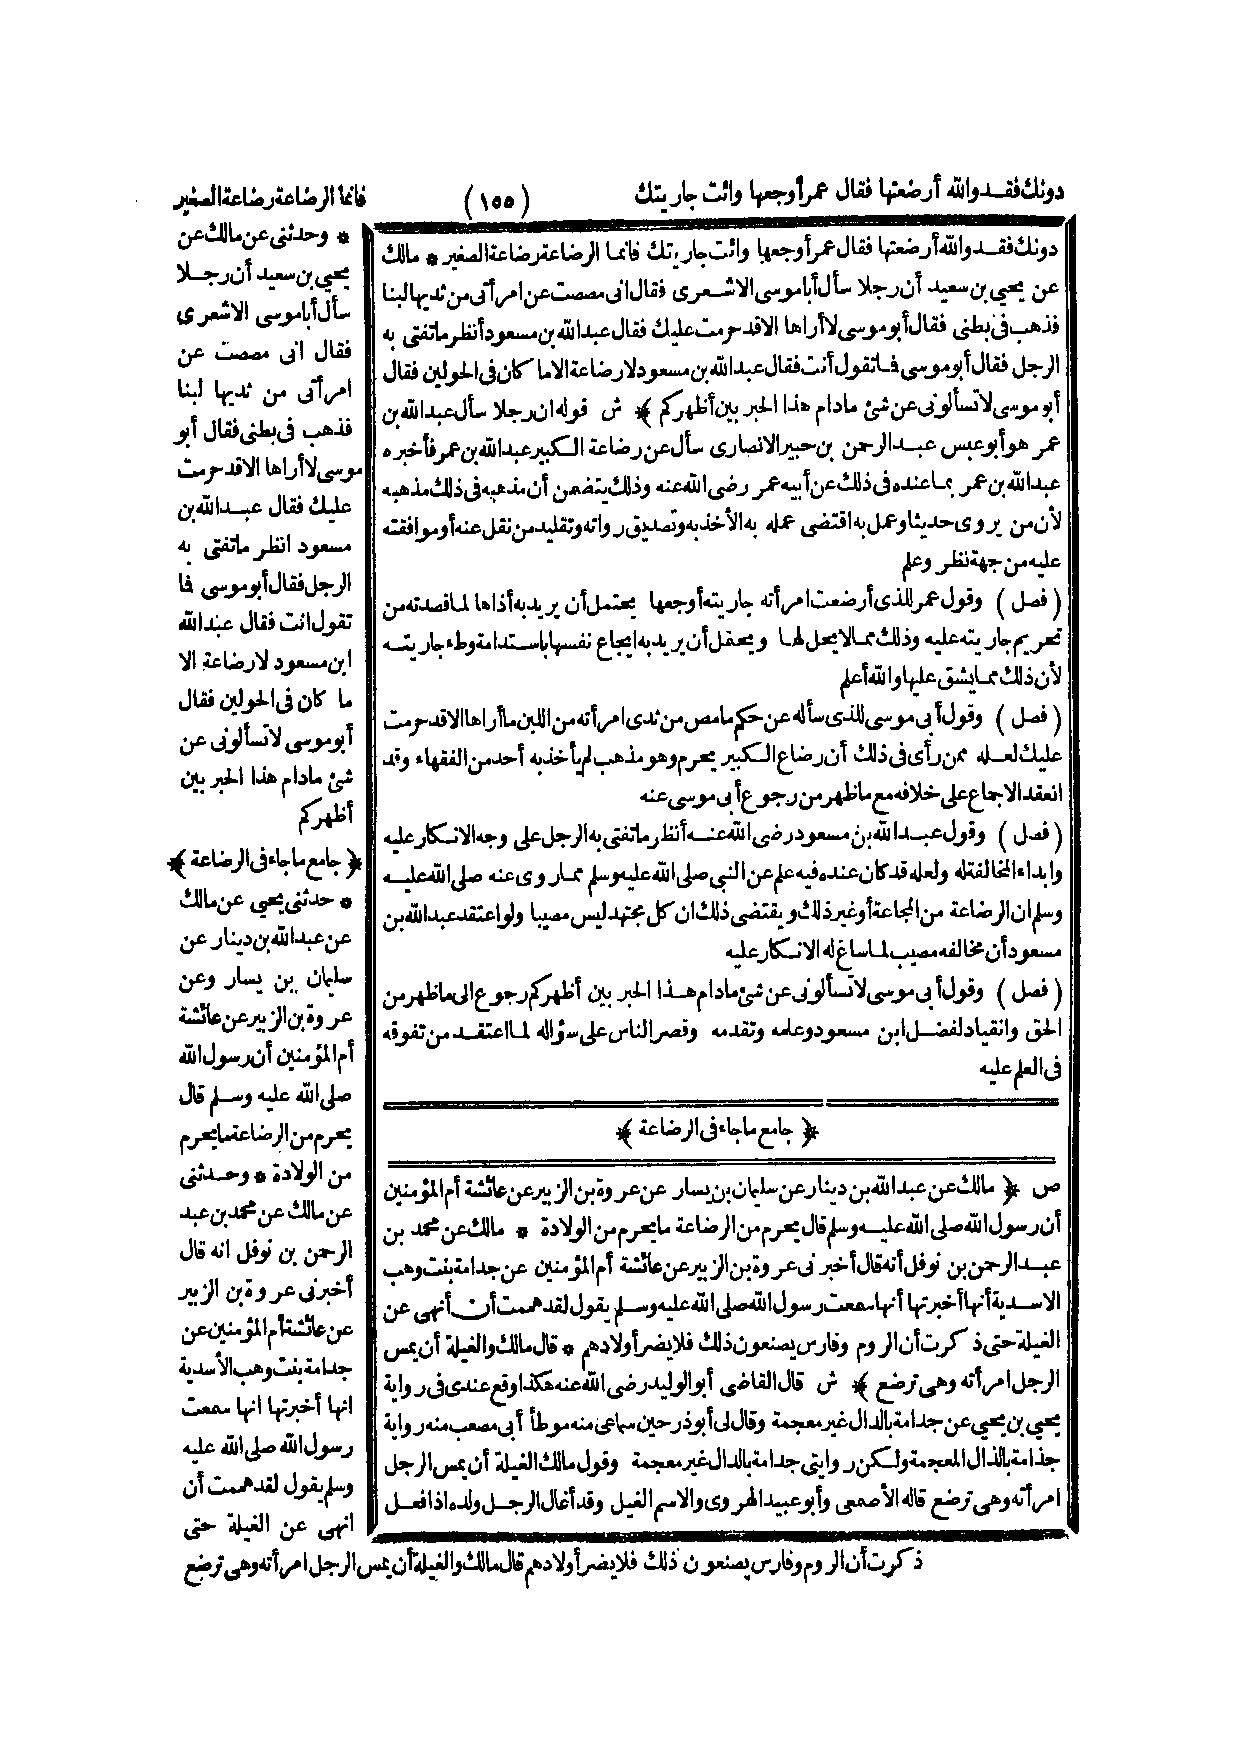 دونك فقد والله أرضعتها فقال عمر أوجعها وائت جاريتك
(١٥٥)
فانما الرضاعة رضاعة الصغير
دونك فقد والله أرضعتها فقال عمر أوجعها وائت جاريتك فانما الرضاعة رضاعة الصغير * مالك
عن يحيى بن سعيد أن رجلا سأل أبا موسى الاشعرى فقال انى مصصت عن امرأتى من ثديها لبنا
فذهب فى بطنى فقال أبو موسى لا أراها الا قد حرمت عليك فقال عبد الله بن مسعود أنظر ما تفتى به
الرجل فقال أبو موسى فما تقول أنت فقال عبد الله بن مسعود لا رضاعة الا ما كان فى الحولين فقال
أبو موسى لا تسألونى عن شئ ما دام هذا الحبر بين أظهركم ﴾ ش قوله ان رجلا سأل عبد الله بن
عمر هو أبو عبس عبد الرحمن بن جبير الانصارى سأل عن رضاعة الكبير عبد الله بن عمر فأخبره
عبد الله بن عمر بما عنده فى ذلك عن أبيه عمر رضى الله عنه وذلك يتضمن أن مذهبه فى ذلك مذهبه
لأن من يروى حديثا وعمل به اقتضى عمله به الأخذ به وتصديق رواته وتقليد من نقل عنه أو موافقته
عليه من جهة نظر وعلم
( فصل ) وقول عمر للذى أرضعت امرأته جاريته أوجعها يحتمل أن يريد به أذاها لما قصدته من
تحريم جاريته عليه وذلك مما لا يحل لها ويحتمل أن يريد به ايجاع نفسها باستدامة وطء جاريته
لأن ذلك مما يشق عليها والله أعلم
( فصل ) وقول أبى موسى للذى سأله عن حكم ما مص من ثدى امرأته من اللبن ما أراها الا قد حرمت
عليك لعله ممن رأى فى ذلك أن رضاع الكبير يحرم وهو مذهب لم يأخذ به أحد من الفقهاء وقد
انعقد الاجماع على خلافه مع ما ظهر من رجوع أبى موسى عنه
( فصل ) وقول عبد الله بن مسعود رضى الله عنه أنظر ما تفتى به الرجل على وجه الانكار عليه
وابداء المخالفة له ولعله قد كان عنده فيه علم عن النبى صلى الله عليه وسلم مما روى عنه صلى الله عليه
وسلم ان الرضاعة من المجاعة أو غير ذلك ويقتضى ذلك ان كل مجتهد ليس مصيبا ولو اعتقد عبد الله بن
مسعود أن مخالفه مصيب لما ساغ له الانكار عليه
( فصل ) وقول أبى موسى لا تسألونى عن شئ ما دام هذا الحبر بين أظهركم رجوع الى ما ظهر من
الحق وانقياد لفضل ابن مسعود وعلمه وتقدمه وقصر الناس على سؤاله لما اعتقد من تفوقه
فى العلم عليه
﴿ جامع ما جاء فى الرضاعة ﴾
ص ﴿ مالك عن عبد الله بن دينار عن سليمان بن يسار عن عروة بن الزبير عن عائشة أم المؤمنين
أن رسول الله صلى الله عليه وسلم قال يحرم من الرضاعة ما يحرم من الولادة * مالك عن محمد بن
عبد الرحمن بن نوفل أنه قال أخبرنى عروة بن الزبير عن عائشة أم المؤمنين عن جدامة بنت وهب
الاسدية أنها أخبرتها أنها سمعت رسول الله صلى الله عليه وسلم يقول لقد هممت أن أنهى عن
الغيلة حتى ذكرت أن الروم وفارس يصنعون ذلك فلا يضر أولادهم * قال مالك والغيلة أن يمس
الرجل امرأته وهى ترضع ﴾ ش قال القاضى أبو الوليد رضى الله عنه هكذا وقع عندى فى رواية
يحيى بن يحيى عن جدامة بالدال غير معجمة وقال لى أبو ذر حين سماعى منه موطأ أبى مصعب منه رواية
جذامة بالذال المعجمة ولكن روايتى جدامة بالدال غير معجمة وقول مالك الغيلة أن يمس الرجل
امرأته وهى ترضع قاله الأصمعى وأبو عبيد الهروى والاسم الغيل وقد أغال الرجل ولده اذا فعل
* وحدثنى عن مالك عن
يحيى بن سعيد أن رجلا
سأل أبا موسى الاشعرى
فقال انى مصصت عن
امرأتى من ثديها لبنا
فذهب فى بطنى فقال أبو
موسى لا أراها الا قد حرمت
عليك فقال عبد الله بن
مسعود انظر ما تفتى به
الرجل فقال أبو موسى فما
تقول انت فقال عبد الله
ابن مسعود لا رضاعة الا
ما كان فى الحولين فقال
أبو موسى لا تسألونى عن
شئ ما دام هذا الحبر بين
أظهركم
﴿ جامع ما جاء فى الرضاعة ﴾
* حدثنى يحيى عن مالك
عن عبد الله بن دينار عن
سليمان بن يسار وعن
عروة بن الزبير عن عائشة
أم المؤمنين أن رسول الله
صلى الله عليه وسلم قال
يحرم من الرضاعة ما يحرم
من الولادة * وحدثنى
عن مالك عن محمد بن عبد
الرحمن بن نوفل انه قال
أخبرنى عروة بن الزبير
عن عائشة أم المؤمنين عن
جدامة بنت وهب الأسدية
انها أخبرتها انها سمعت
رسول الله صلى الله عليه
وسلم يقول لقد هممت أن
انهى عن الغيلة حتى
ذكرت أن الروم وفارس يصنعون ذلك فلا يضر أولادهم قال مالك والغيلة أن يمس الرجل امرأته وهى ترضع